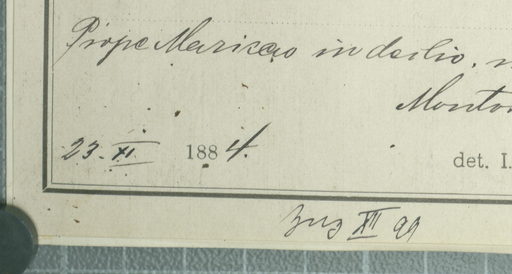 Prope Maricao in declio.
Monto
23. XI 1884.
det. I.
XII 99